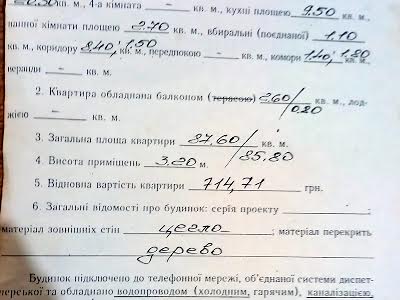 20.50 кв. м, 4-а кімната — кв. м., кухні площею 9.50 кв. м,
ванної кімнати площею 2.70 кв. м., вбиральні (поєднаної) 1.10
кв. м, коридору 8.40; 1.50 кв. м, передпокою — кв. м., комори 1.40; 1.80
веранди — кв. м.
2. Квартира обладнана балконом (терасою) 2.60/0.80 кв. м., лод-
жією — кв. м.
3. Загальна площа квартири 87,60/85.80 кв. м.
4. Висота приміщень 3.20 м.
5. Відновна вартість квартири 714,71 грн.
6. Загальні відомості про будинок: серія проекту
матеріал зовнішніх стін цегла; матеріал перекрить
дерево
Будинок підключено до телефонної мережі, об'єднаної системи диспет-
черської та обладнано водопроводом (холодним, гарячим), каналізацією,